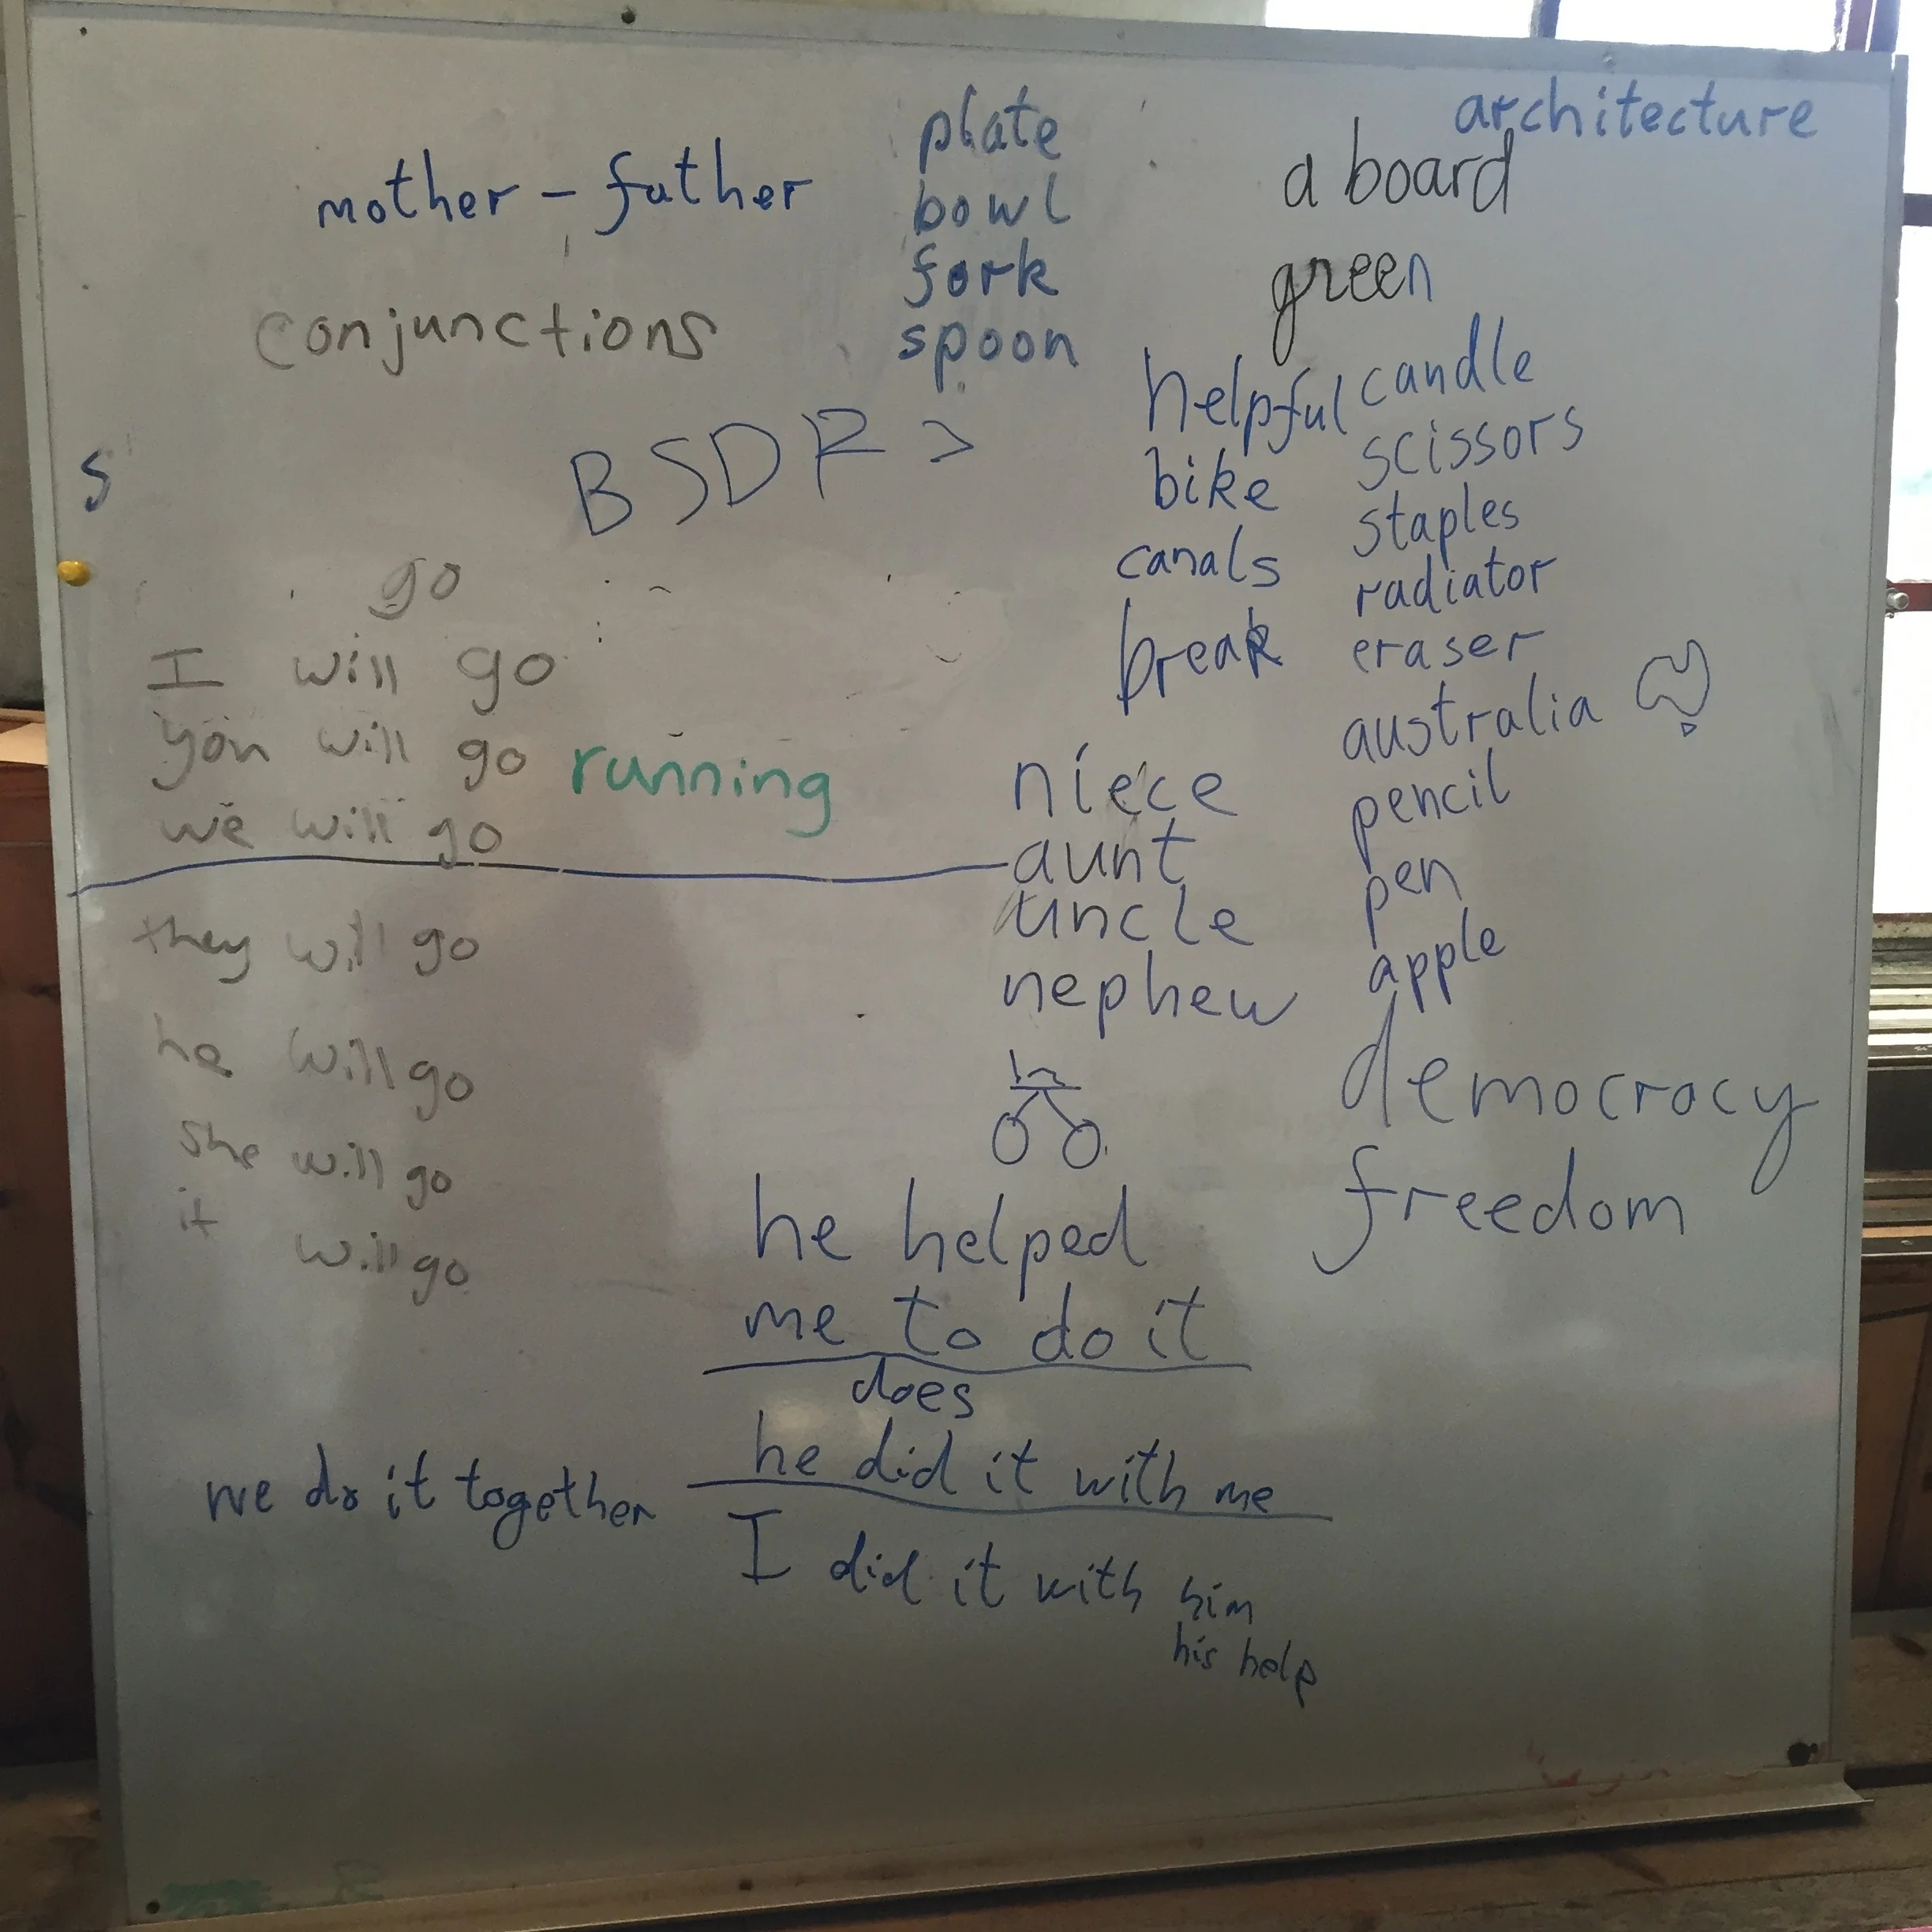 architecture
mother - father
plate
bowl
fork
spoon
a board
green
conjunctions
BSDF >
s
helpful
bike
canals
break
candle
scissors
staples
radiator
eraser
australia
pencil
pen
apple
democracy
freedom
go
I will go
you will go running
we will go
they will go
he will go
she will go
it will go
niece
aunt
uncle
nephew
he helped
me to do it
does
he did it with me
we do it together
I did it with him
his help